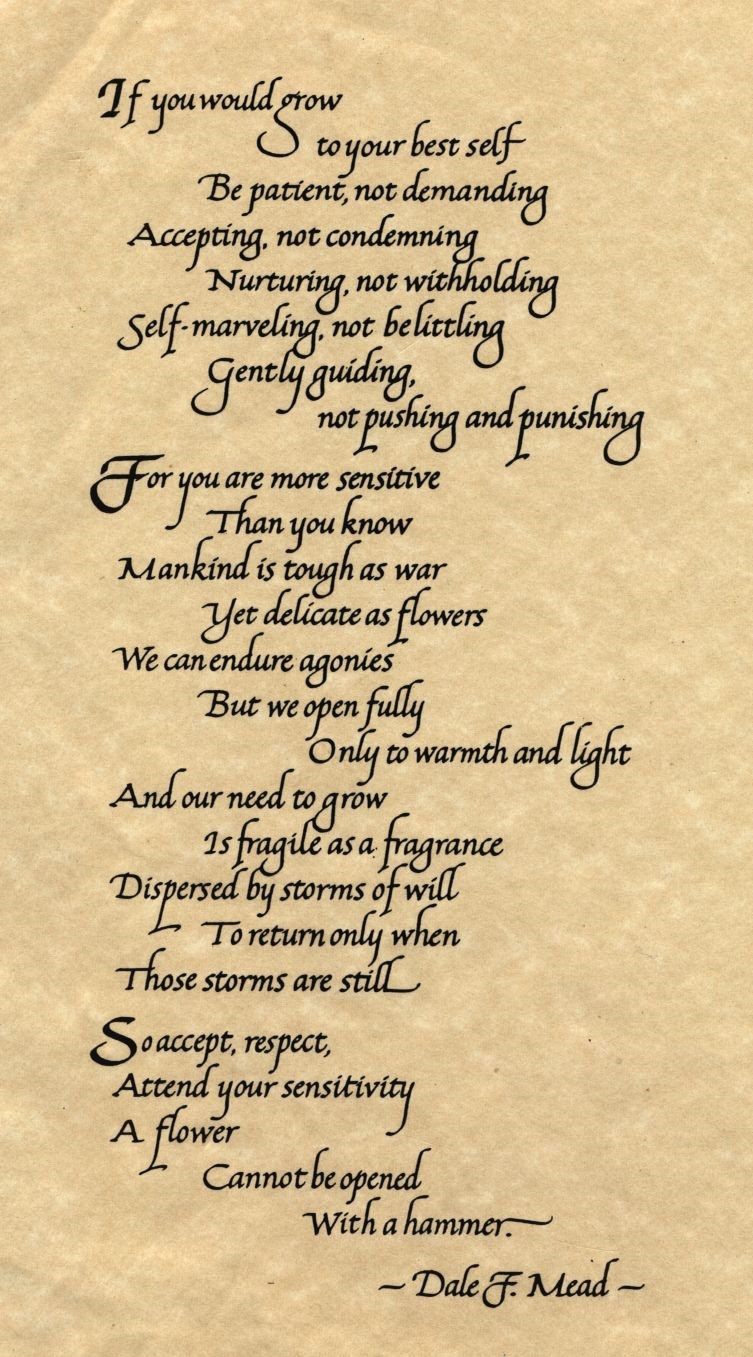 If you would grow
to your best self
Be patient, not demanding
Accepting, not condemning
Nurturing, not withholding
Self-marveling, not belittling
Gently guiding,
not pushing and punishing
For you are more sensitive
Than you know
Mankind is tough as war
Yet delicate as flowers
We can endure agonies
But we open fully
Only to warmth and light
And our need to grow
Is fragile as a fragrance
Dispersed by storms of will
To return only when
Those storms are still
So accept, respect,
Attend your sensitivity
A flower
Cannot be opened
With a hammer.
~ Dale F. Mead ~